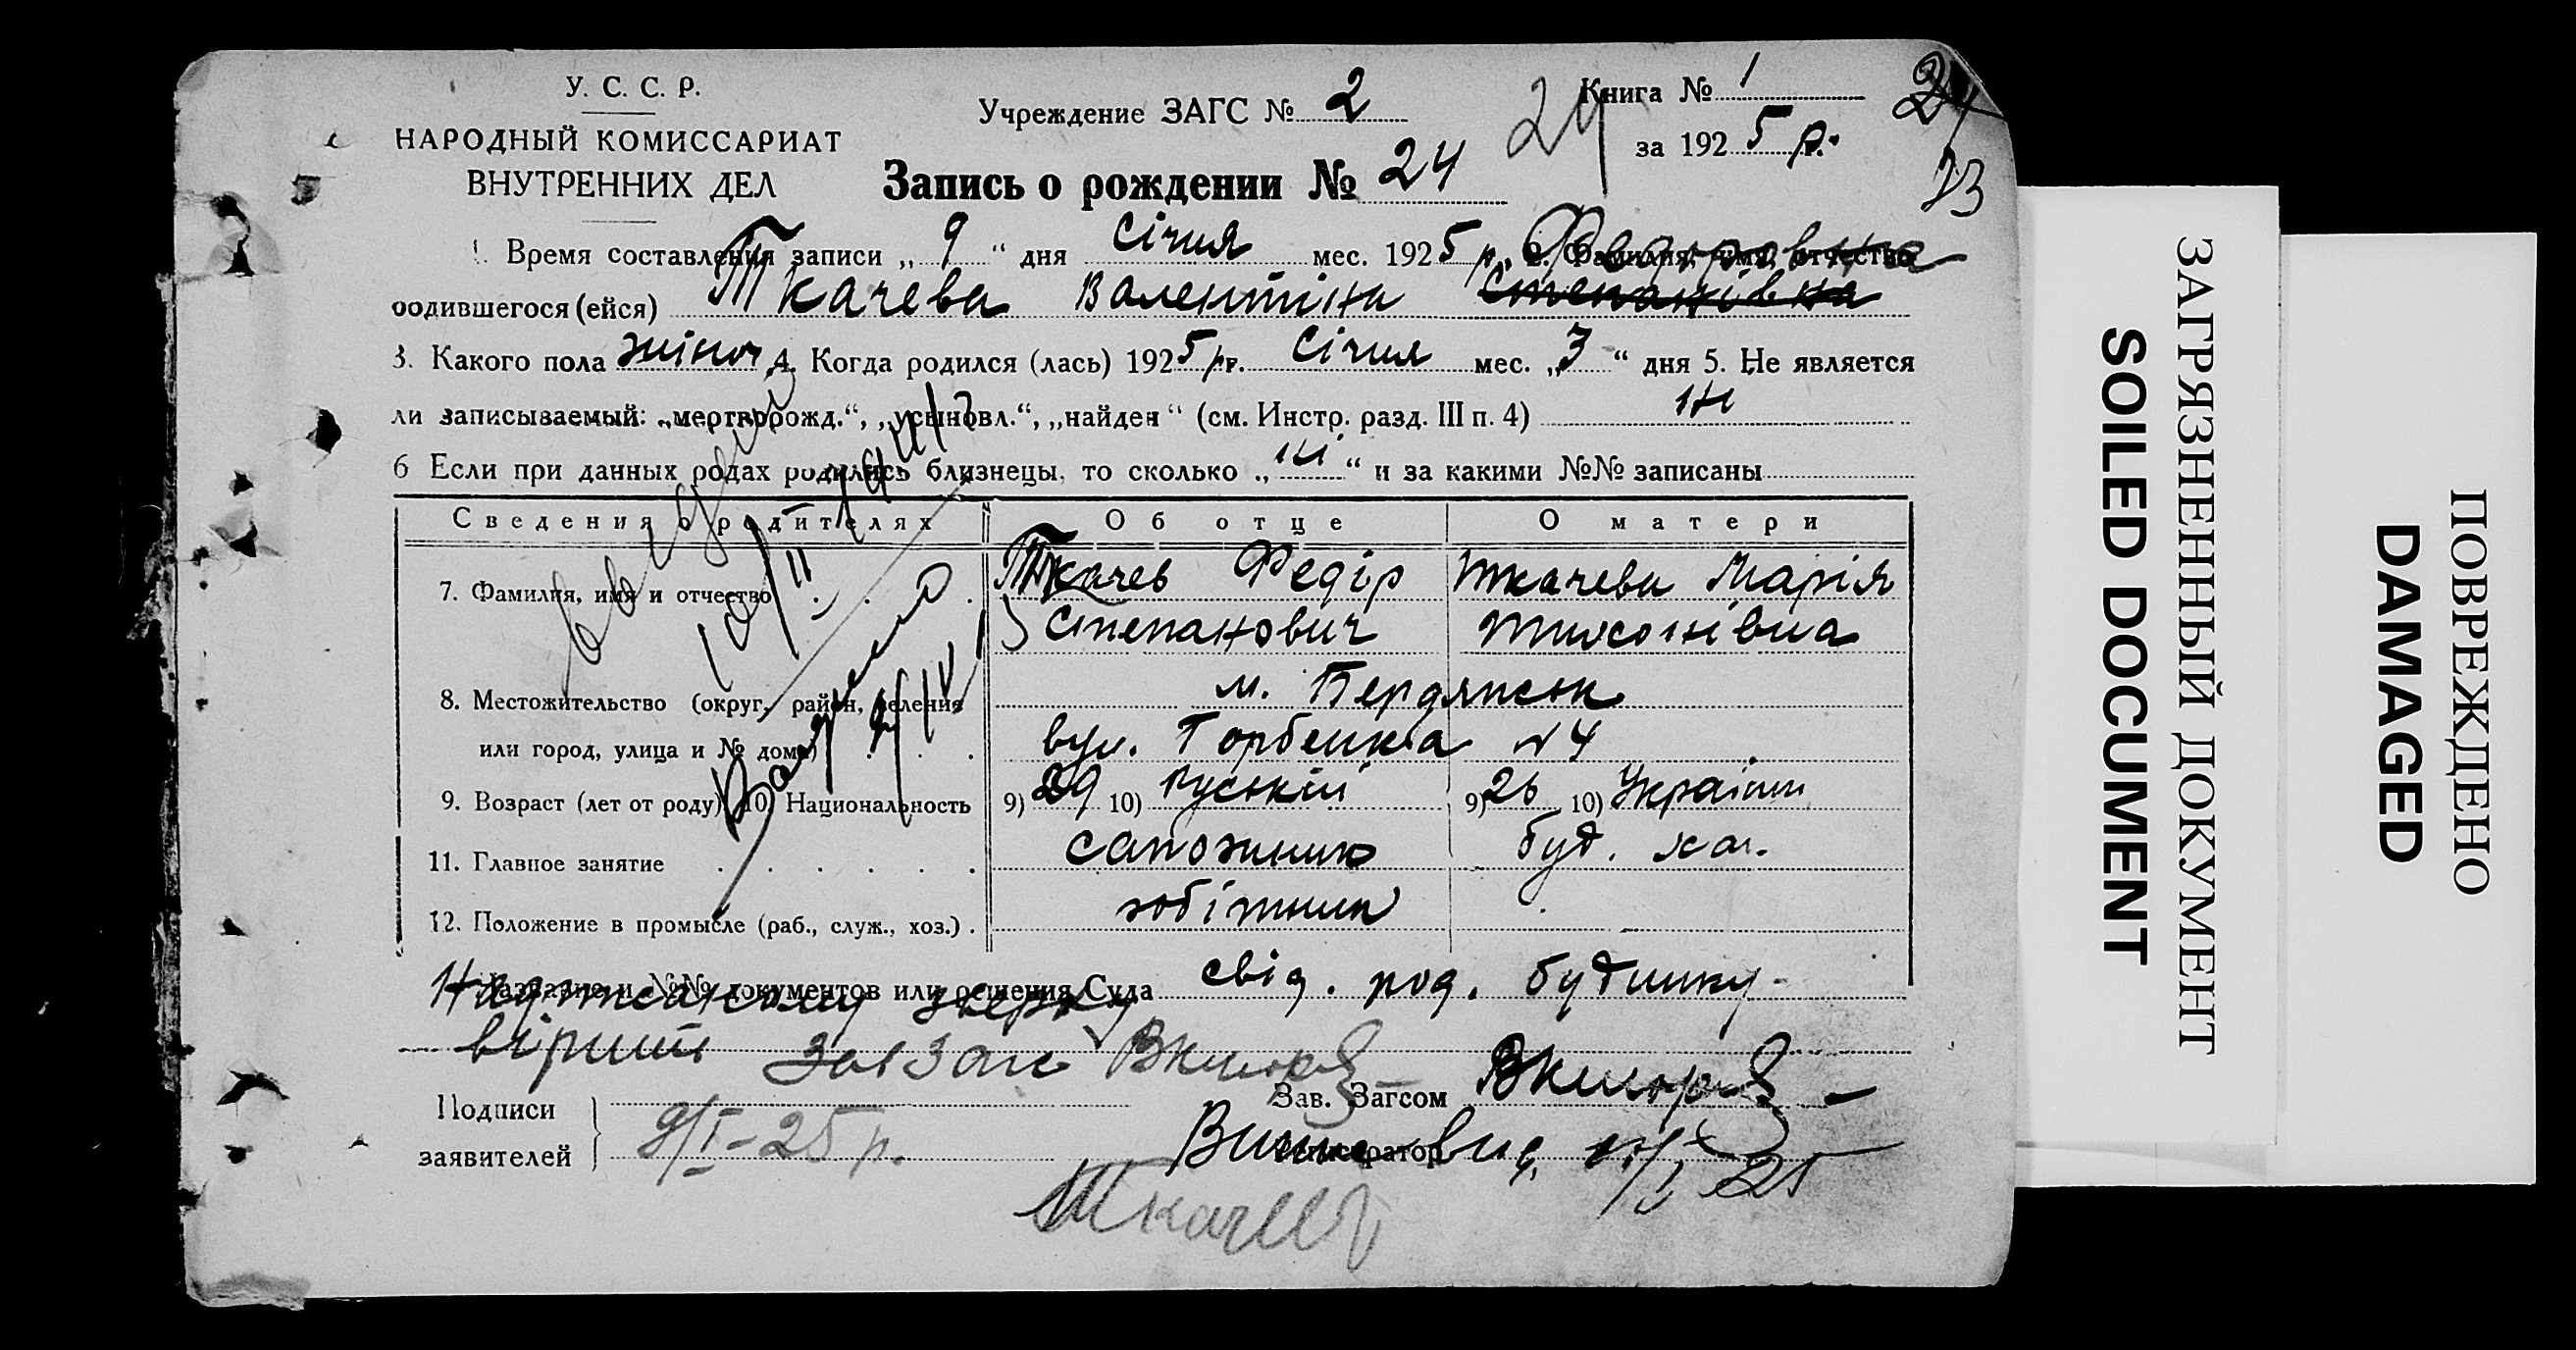 У. С. С. Р.
НАРОДНЫЙ КОМИССАРИАТ
ВНУТРЕННИХ ДЕЛ
Учреждение ЗАГС № 2
Книга № 1
за 1925 р.
24
24
23
Запись о рождении № 24
1. Время составления записи „9“ дня Січня мес. 1925 р. 2. Фамилия, имя, отчество
Федоровна
родившегося (ейся) Ткачева Валентіна Степанівна
3. Какого пола жіноч 4. Когда родился (лась) 1925 р. Січня мес. „3“ дня 5. Не является
ли записываемый: „мертворожд.“, „усыновл.“, „найден“ (см. Инстр. разд. III п. 4) ні
6 Если при данных родах родились близнецы, то сколько „ні“ и за какими №№ записаны
Сведения о родителях Об отце О матери
7. Фамилия, имя и отчество Ткачев Федір Ткачева Марія
Степанович Тихонівна
8. Местожительство (округ, район, селения м. Бердянськ
или город, улица и № дома) вул. Горбенка № 4
9. Возраст (лет от роду) 10) Национальность 9) 29 10) Руський 9) 26 10) Україн
11. Главное занятие сапожник буд. хаз.
12. Положение в промысле (раб., служ., хоз.) робітник
Название и №№ документов или решения Суда свід. род. будинку
Надписаному зверху
вірити ЗавЗагс
Подписи
заявителей
9/I-25 р.
Зав. Загсом
Регистратор
Ткачев
ЗАГРЯЗНЕННЫЙ ДОКУМЕНТ
SOILED DOCUMENT
ПОВРЕЖДЕНО
DAMAGED